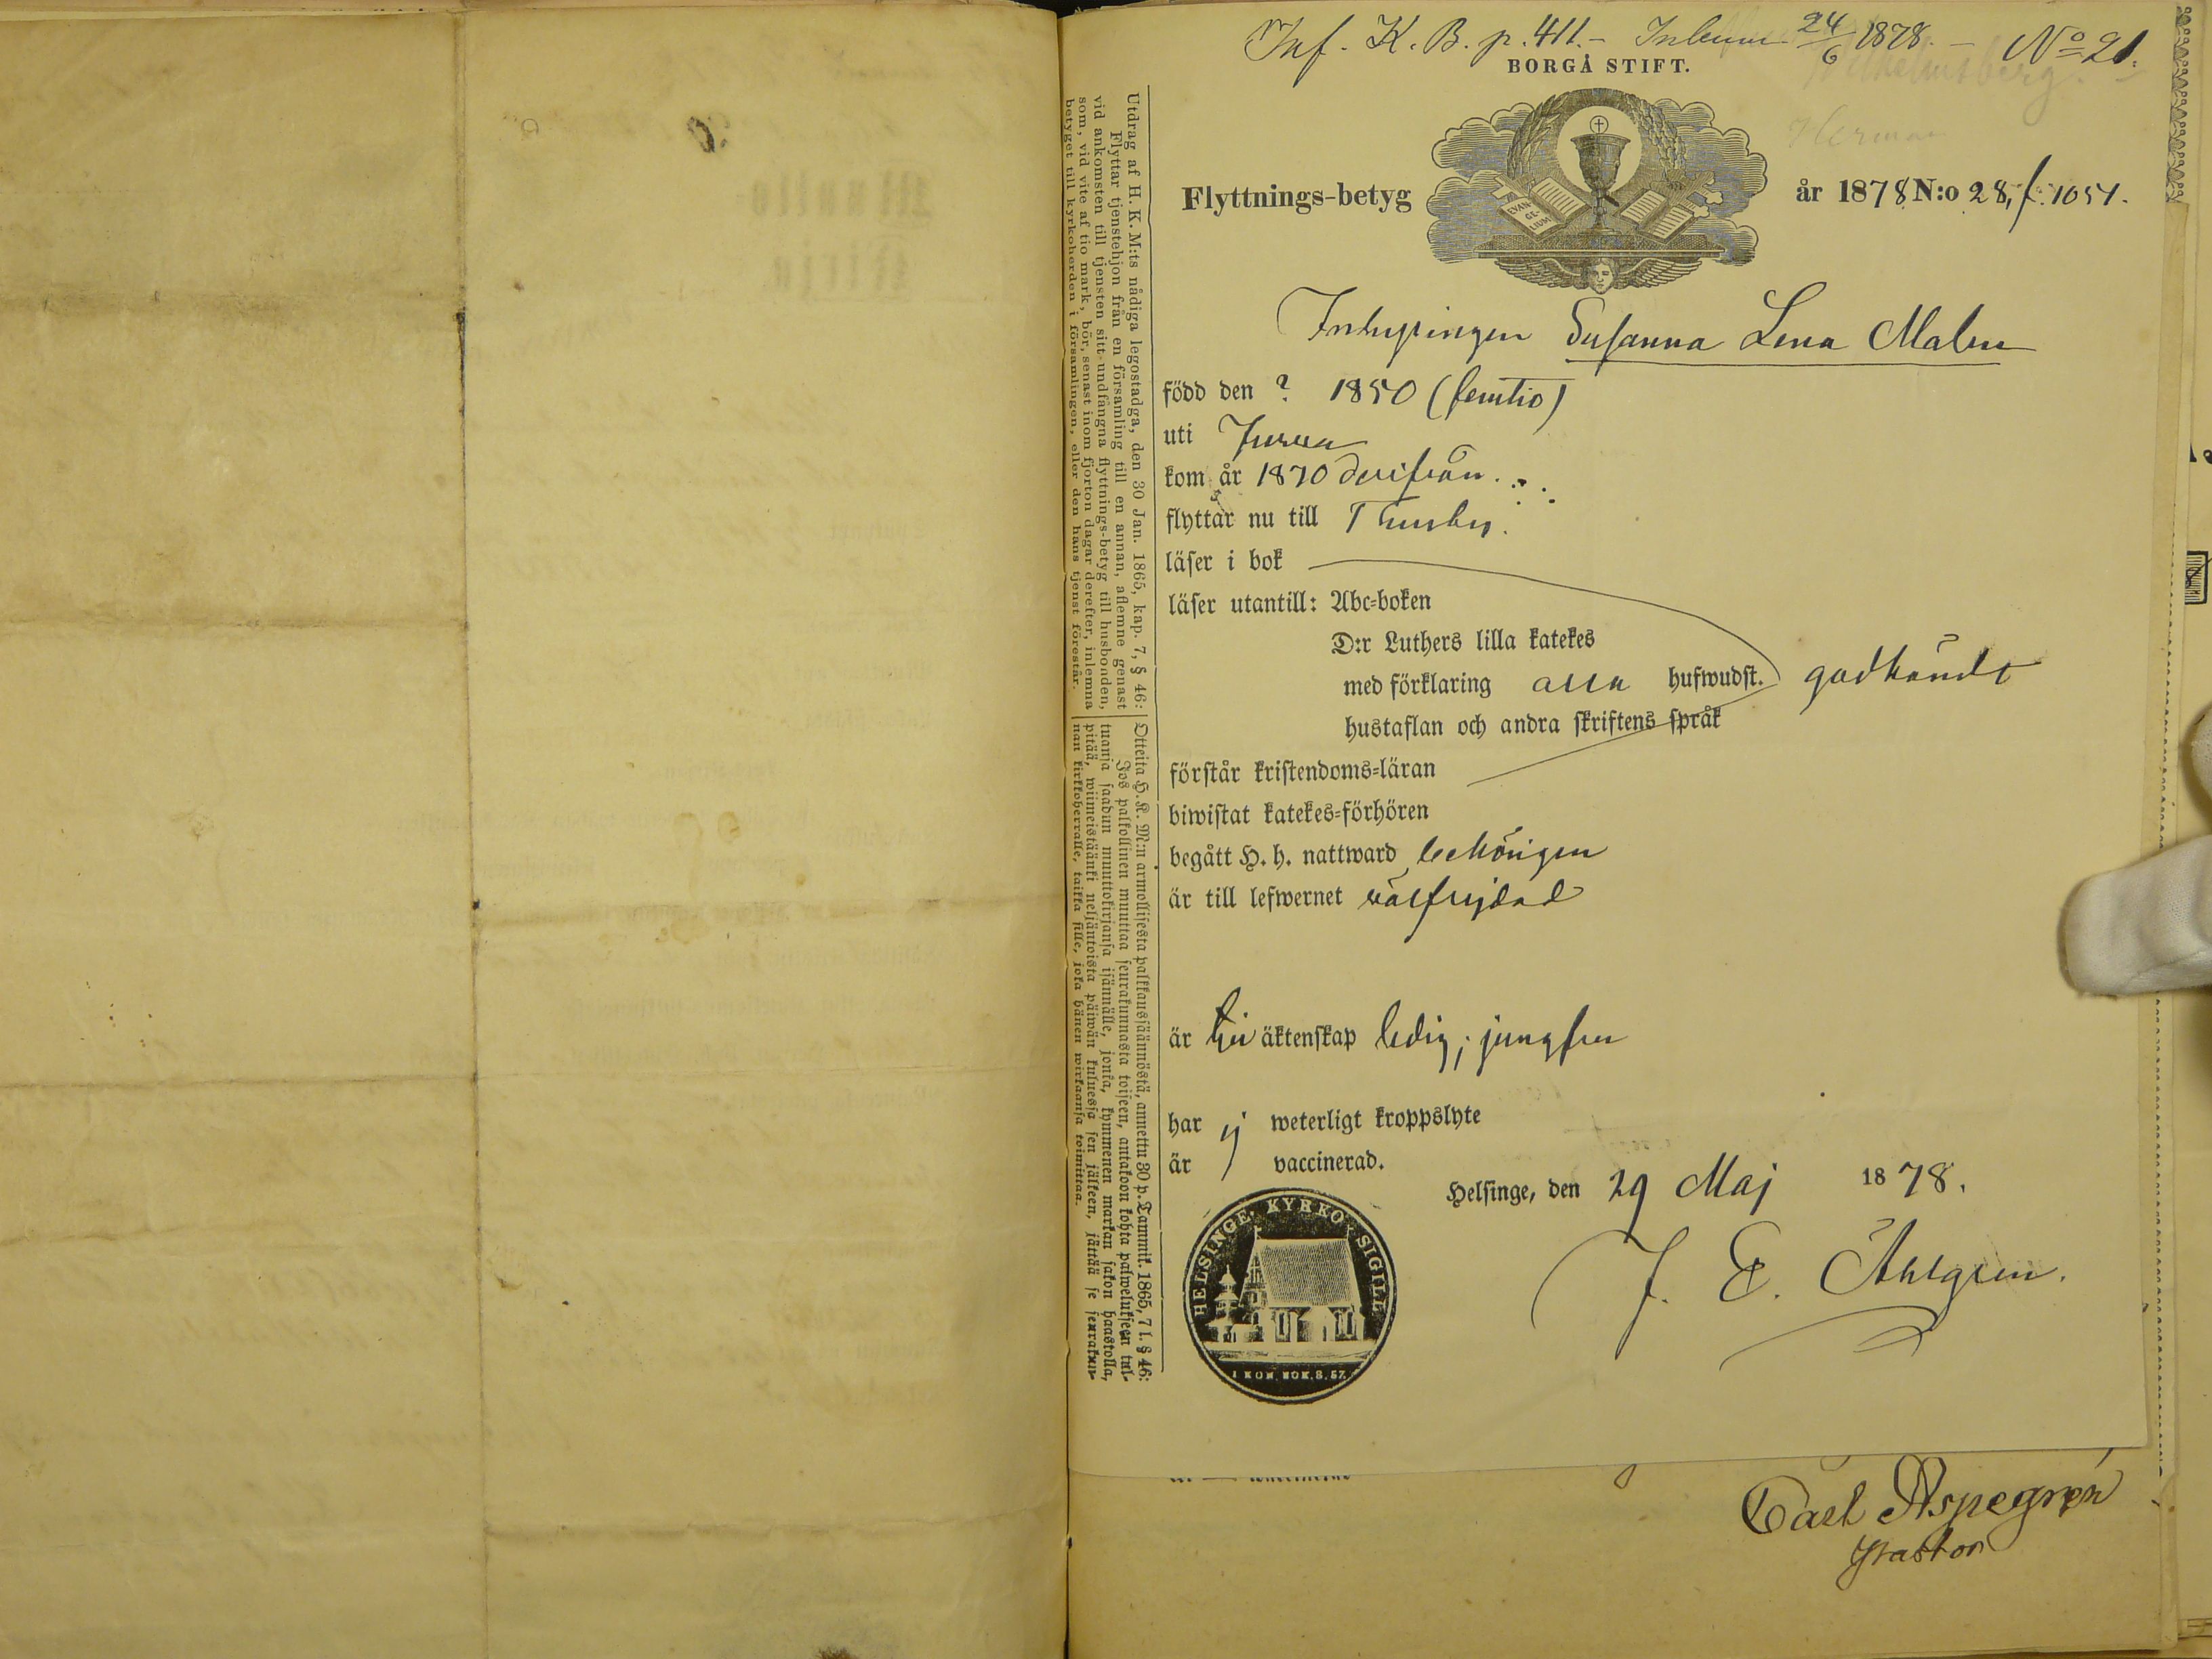 Inf. K. B. p. 411. - Inlemn 24/6 1878. - No 21.
BORGÅ STIFT.
Herman
Flyttnings-betyg
EVAN-
GE-
LIUM
år 1878 N:o 28, f. 1051.
Inhysingen Susanna Lena Malm
född den ? 1850 (femtio)
uti Jurva
kom år 1870 derifrån.
flyttar nu till Thusby.
läser i bok
läser utantill: Abc-boken
D:r Luthers lilla katekes
med förklaring alla hufwudst. godkändt
hustaflan och andra skriftens språk
förstår kristendoms-läran
biwistat katekes-förhören
begått H. h. nattward behörigen
är till lefwernet välfrejdad
är till äktenskap ledig; jungfru
har ej weterligt kroppslyte
är vaccinerad.
Helsinge, den 29 Maj 1878.
J. E. Åhlgren.
HELSINGE KYRKO SIGILL
I KON. BOK. 8. 57.
Utdrag af H. K. M:ts nådiga legostadga, den 30 Jan. 1865, kap. 7, § 46:
Flyttar tjenstehjon från en församling till en annan, aflemne genast
vid ankomsten till tjensten sitt undfångna flyttnings-betyg till husbonden,
som, vid vite af tio mark, bör, senast inom fjorton dagar derefter, inlemna
betyget till kyrkoherden i församlingen, eller den hans tjenst förestår.
Otteita H. K. M:n armollisesta palkkausjäännöstä, annettu 30 p. Tammik. 1865, 7 l. § 46:
Jos palkollinen muuttaa seurakunnasta toiseen, antakoon kohta palwelukseen tul-
tuanja saadun muuttokirjansa isännälle, jonka, kymmenen markan sakon haastolla,
pitää, wiimeistäänki neljäntoista päiwän kuluessa sen jälkeen, jättää se seurakun-
nan kirkkoherralle, taikka sille, joka hänen wirkaansa toimittaa.
Carl Aspegrén
Pastor